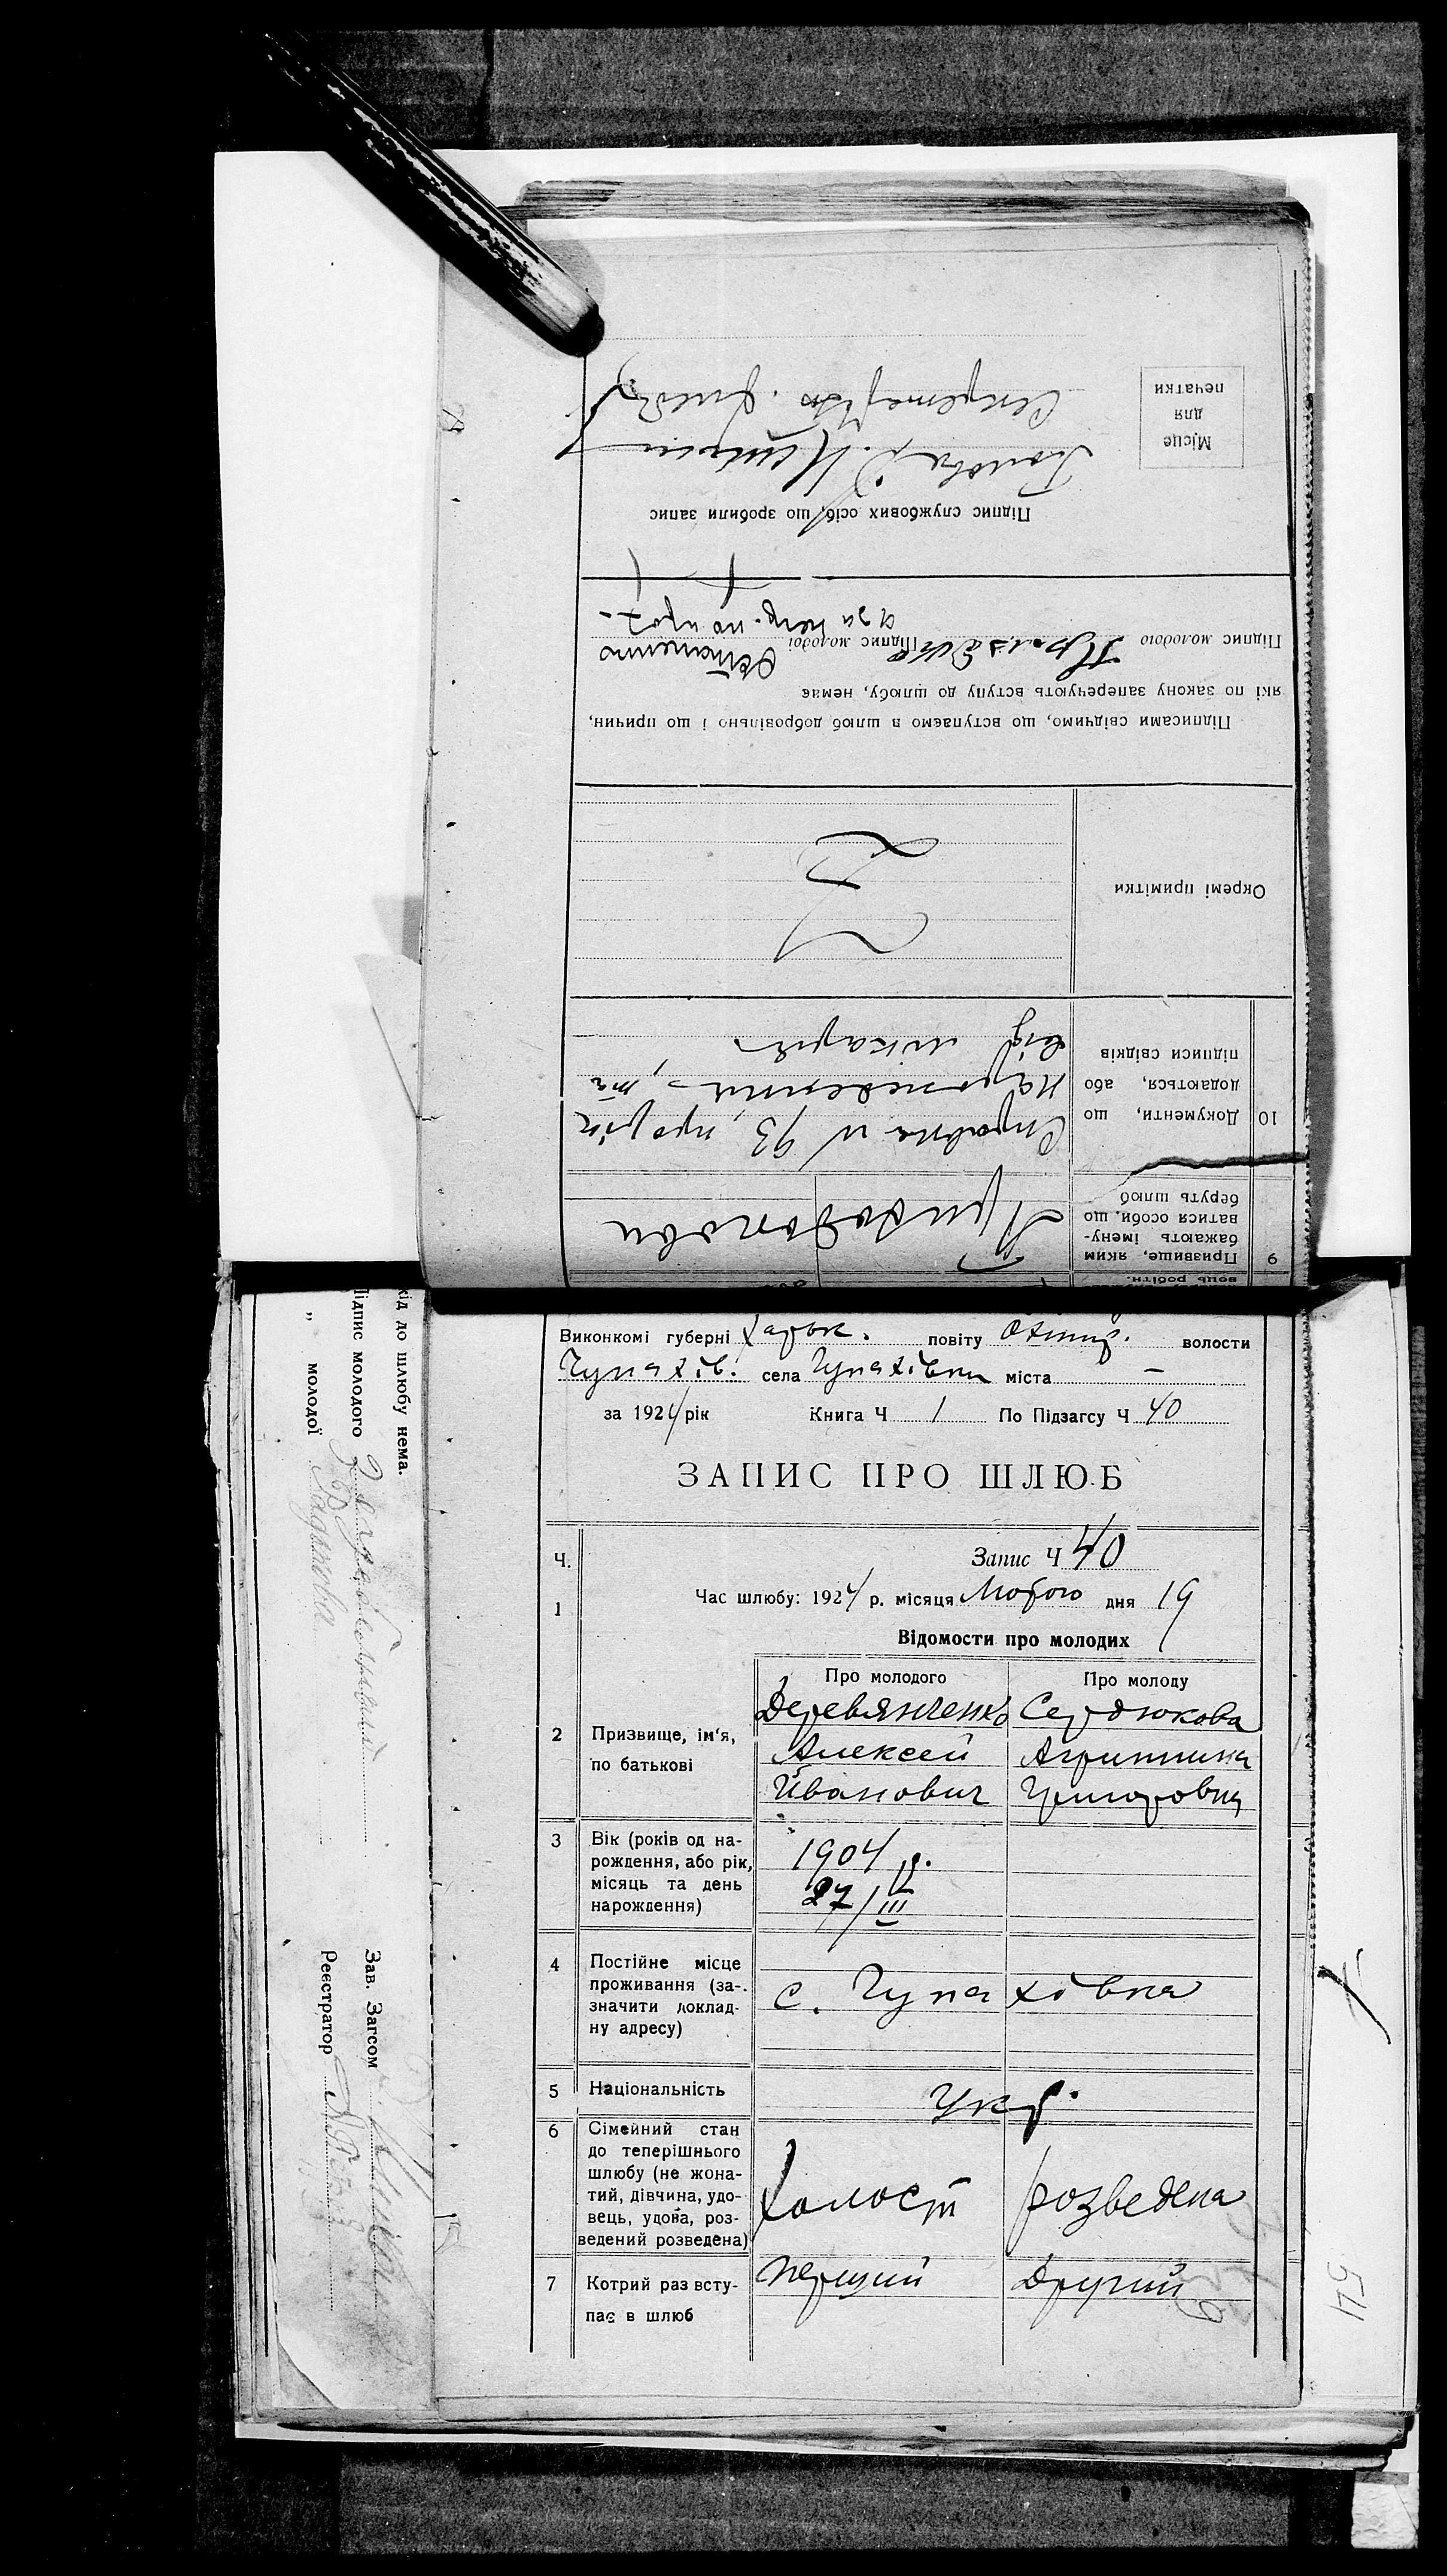 вець робітн.
9 Призвище, яким
бажають імену-
ватися особи, що
беруть шлюб
10 Документи, що
додаються, або
підписи свідків
Справка № 93, про
від лікаря
Окремі примітки
Підписами свідчимо, що вступаємо в шлюб добровільно і що причин,
які по закону заперечують вступу до шлюбу, немає
Підпис молодого
Підпис молодої
а за негр. по прог.
Підпис службових осіб, що зробили запис
Місце
для
печатки
Голова
Секретарь
Виконкомі губерні Харьк. повіту Охтир. волости
Чупахів. села Чупахівки міста —
за 1924 рік Книга Ч 1 По Підзагсу Ч 40
ЗАПИС ПРО ШЛЮБ
Ч. Запис Ч 40
1 Час шлюбу: 1924 р. місяця Лютого дня 19
Відомости про молодих
Про молодого Про молоду
2 Призвище, ім'я,
по батькові
Деревянченко Сердюкова
Алексей Агрипина
Иванович Григоровна
3 Вік (років од на-
рождення, або рік,
місяць та день
нарождення)
1904 р.
27/III
4 Постійне місце
проживання (за-
значити доклад-
ну адресу)
с. Чупахівка
5 Національність Укр.
6 Сімейний стан
до теперішнього
шлюбу (не жона-
тий, дівчина, удо-
вець, удова, роз-
ведений розведена)
Холост розведена
7 Котрий раз всту-
пає в шлюб
перший Другий
хід до шлюбу нема.
Підпис молодого
" молодої
Зав. Загсом
Реєстратор
54